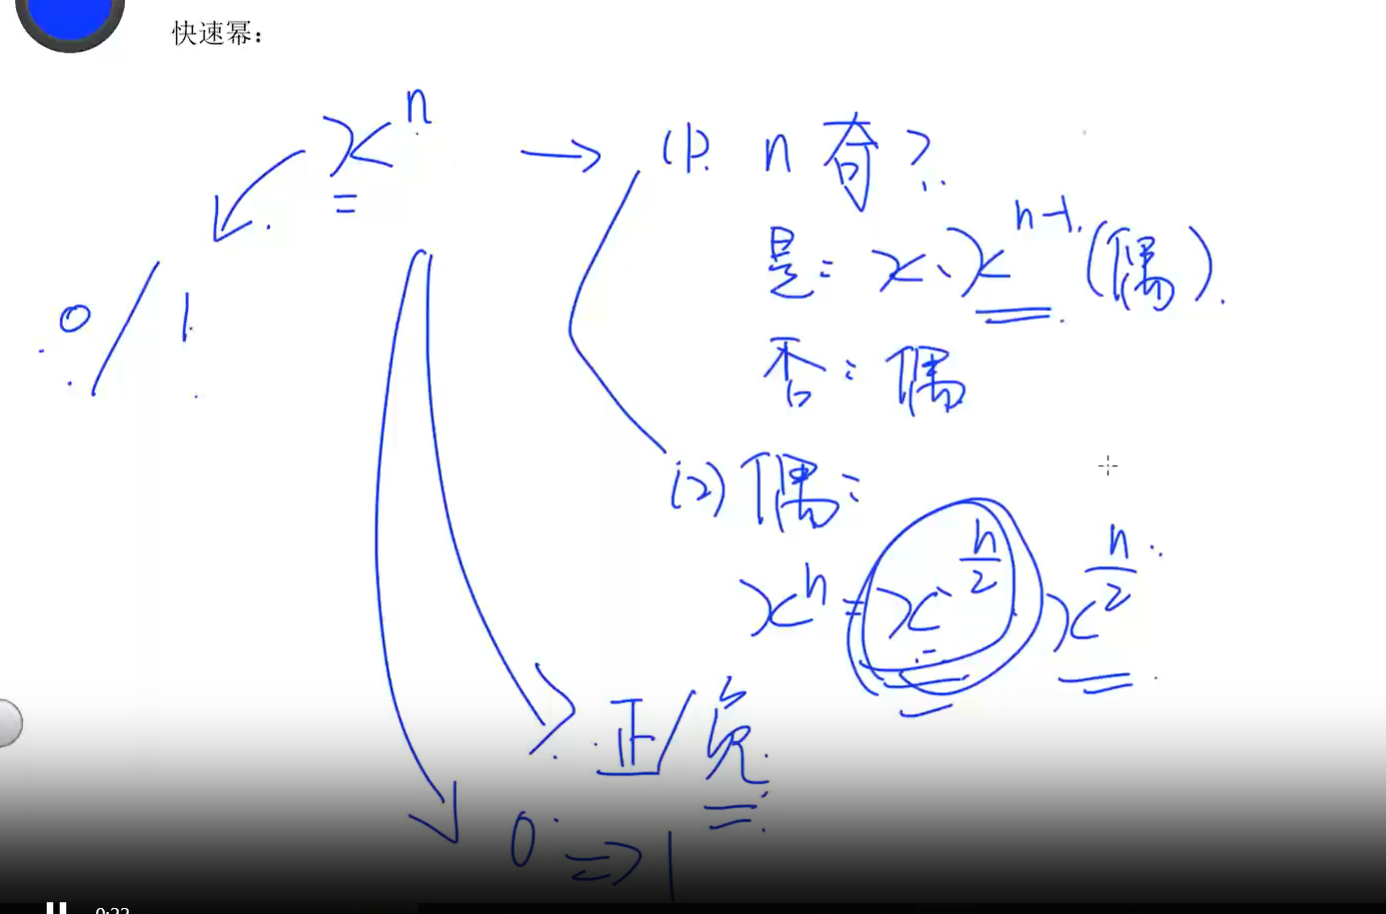 快速幂:
xⁿ → (1). n 奇?
是: x·xⁿ⁻¹ (偶).
0/1
否: 偶
(2) 偶:
xⁿ = x^(n/2) x^(n/2)
正/负
0 => 1
0:22